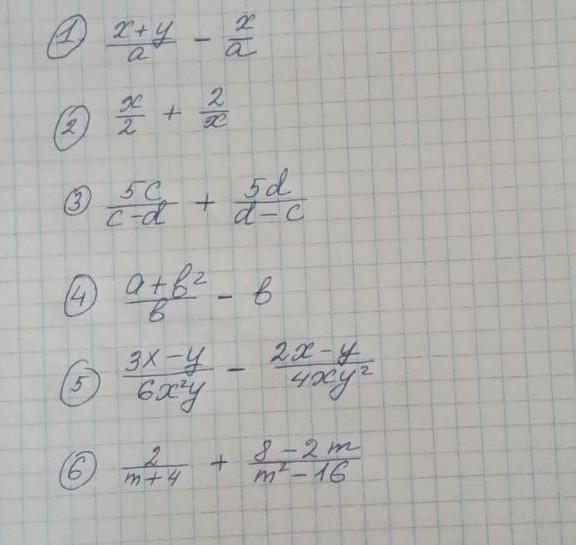 ① (x+y)/a - x/a
② x/2 + 2/x
③ 5c/(c-d) + 5d/(d-c)
④ (a+b²)/b - b
⑤ (3x-y)/(6x²y) - (2x-y)/(4xy²)
⑥ 2/(m+4) + (8-2m)/(m²-16)